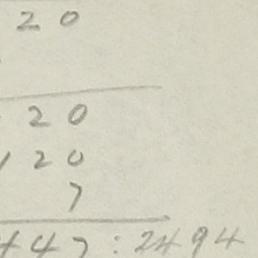 20
20
120
7
447:2494